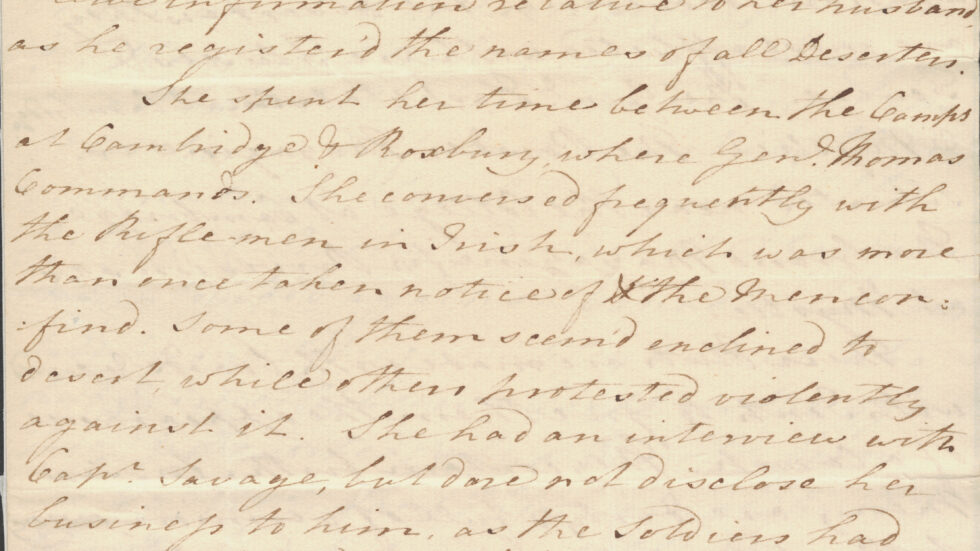 information relative to her husband,
as he register'd the names of all Deserters.
She spent her time between the Camps
at Cambridge & Roxbury, where Genl. Thomas
Commands. She conversed frequently with
the Rifle-men in Irish, which was more
than once taken notice of & the Men con:
:find. Some of them seem'd enclined to
desert, while others protested violently
against it. She had an interview with
Capt. Savage, but dare not disclose her
business to him, as the Soldiers had